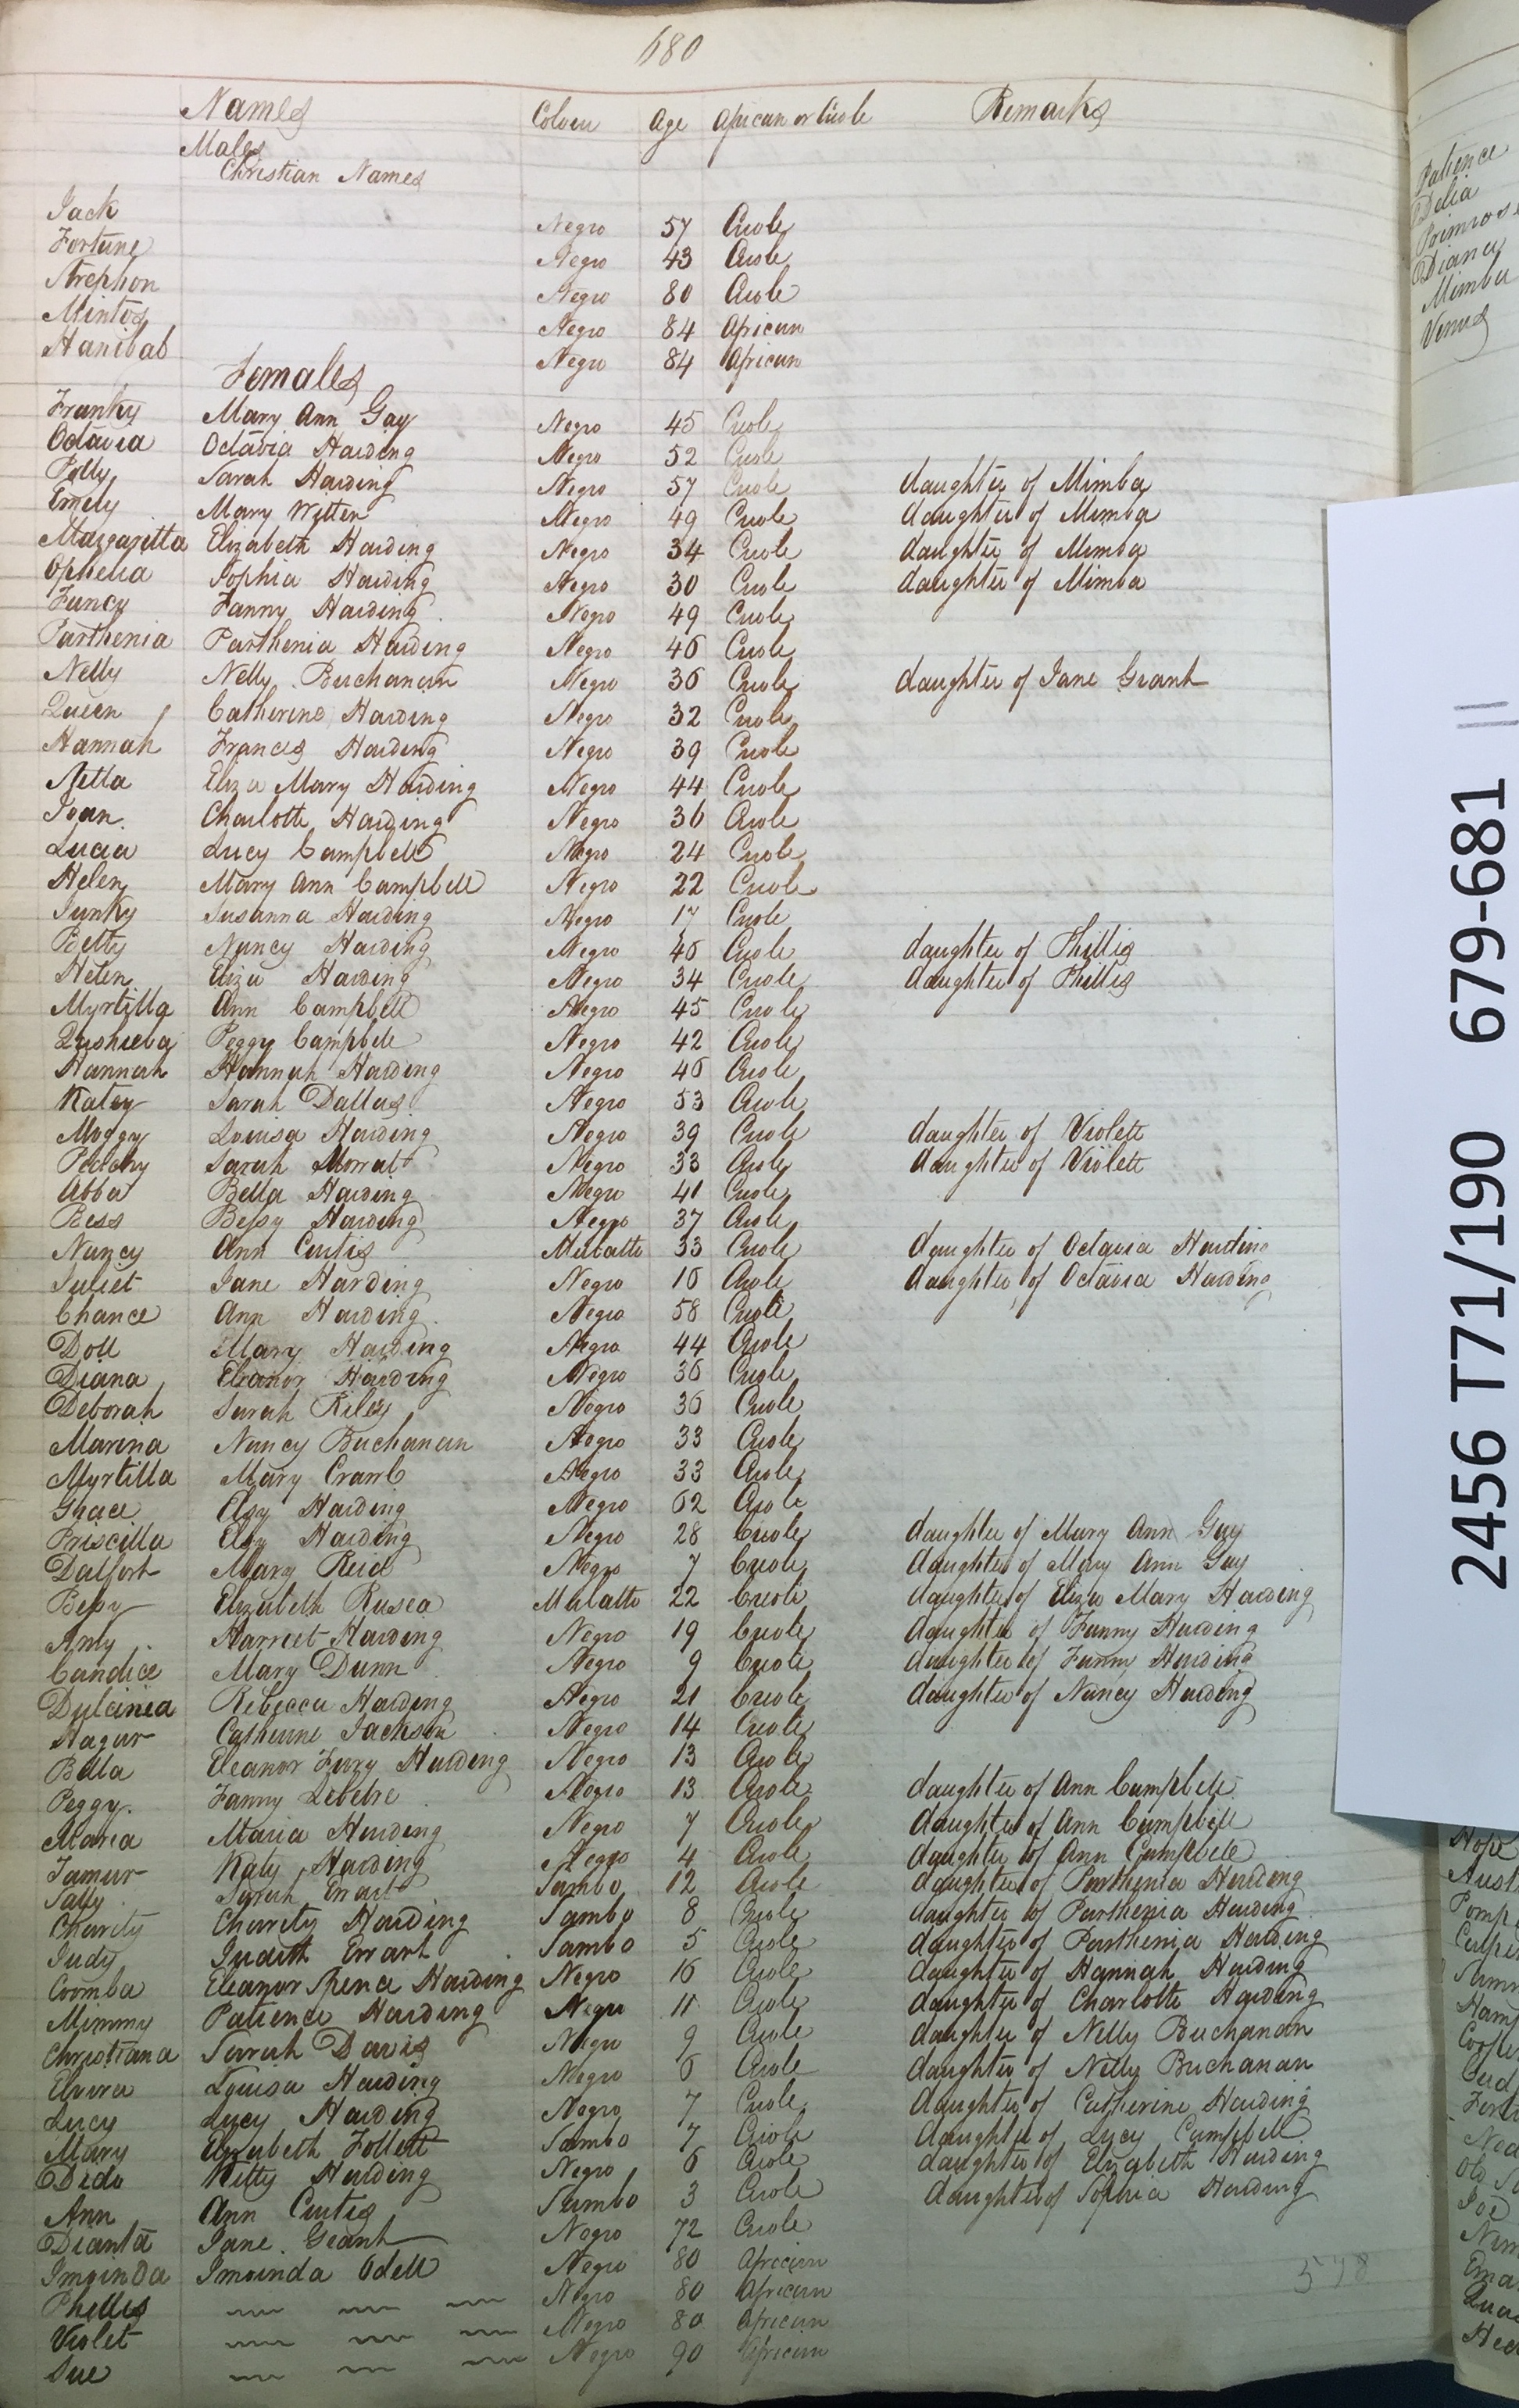 680
Names Colour Age African or Creole Remarks
Males
Christian Names
Jack Negro 57 Creole
Fortune Negro 43 Creole
Strephon Negro 80 Creole
Mintos Negro 84 African
Hanibal Negro 84 African
Females
Franky Mary Ann Gay Negro 45 Creole
Octavia Octavia Harding Negro 52 Creole
Polly Sarah Harding Negro 57 Creole daughter of Mimba
Emely Mary Witter Negro 49 Creole daughter of Mimba
Margaritta Elizabeth Harding Negro 34 Creole daughter of Mimba
Ophelia Sophia Harding Negro 30 Creole daughter of Mimba
Fancy Fanny Harding Negro 49 Creole
Parthenia Parthenia Harding Negro 46 Creole
Nelly Nelly Buchanan Negro 36 Creole daughter of Jane Grant
Queen Catherine Harding Negro 32 Creole
Hannah Frances Harding Negro 39 Creole
Netta Eliza Mary Harding Negro 44 Creole
Joan Charlotte Harding Negro 36 Creole
Lucia Lucy Campbell Negro 24 Creole
Helen Mary Ann Campbell Negro 22 Creole
Junky Susanna Harding Negro 17 Creole
Betty Nancy Harding Negro 46 Creole daughter of Phillis
Helen Eliza Harding Negro 34 Creole daughter of Phillis
Myrtilla Ann Campbell Negro 45 Creole
Quasheba Peggy Campbell Negro 42 Creole
Hannah Hannah Harding Negro 46 Creole
Katey Sarah Dallas Negro 53 Creole
Moggy Louisa Harding Negro 39 Creole daughter of Violett
Peachy Sarah Morratt Negro 33 Creole daughter of Violett
Abba Bella Harding Negro 41 Creole
Bess Bessy Harding Negro 37 Creole
Nancy Ann Curtis Mulatto 33 Creole daughter of Octavia Harding
Juliet Jane Harding Negro 16 Creole daughter of Octavia Harding
Chance Ann Harding Negro 58 Creole
Doll Mary Harding Negro 44 Creole
Diana Eleanor Harding Negro 36 Creole
Deborah Sarah Riley Negro 36 Creole
Marina Nancy Buchanan Negro 33 Creole
Myrtilla Mary Crawl Negro 33 Creole
Grace Elsy Harding Negro 62 Creole
Priscilla Elsy Harding Negro 28 Creole daughter of Mary Ann Gay
Dalfort Mary Reid Negro 7 Creole daughter of Mary Ann Gay
Bessy Elizabeth Rusea Mulatto 22 Creole daughter of Eliza Mary Harding
Amy Harriet Harding Negro 19 Creole daughter of Fanny Harding
Candice Mary Dunn Negro 9 Creole daughter of Fanny Harding
Dulcinea Rebecca Harding Negro 21 Creole daughter of Nancy Harding
Hagar Catherine Jackson Negro 14 Creole
Bella Eleanor Fury Harding Negro 13 Creole
Peggy Fanny Lebebre Negro 13 Creole daughter of Ann Campbell
Maria Maria Harding Negro 7 Creole daughter of Ann Campbell
Tamar Katy Harding Negro 4 Creole daughter of Ann Campbell
Sally Sarah Errart Sambo 12 Creole daughter of Parthenia Harding
Charity Charity Harding Sambo 8 Creole daughter of Parthenia Harding
Judy Judith Errart Sambo 5 Creole daughter of Parthenia Harding
Coomba Eleanor Spence Harding Negro 16 Creole daughter of Hannah Harding
Mimmy Patience Harding Negro 11 Creole daughter of Charlotte Harding
Christiana Sarrah Davis Negro 9 Creole daughter of Nelly Buchanan
Elvira Louisa Harding Negro 6 Creole daughter of Nelly Buchanan
Lucy Lucy Harding Negro 7 Creole daughter of Catherine Harding
Mary Elizabeth Follett Sambo 7 Creole daughter of Lucy Campbell
Dido Kitty Harding Negro 6 Creole daughter of Elizabeth Harding
Ann Ann Curtis Sambo 3 Creole daughter of Sophia Harding
Dianta Jane Grant Negro 72 Creole
Imoinda Imoinda Odell Negro 80 African
Phillis Negro 80 African
Violet Negro 80 African
Sue Negro 90 African
578
Patience
Delia
Primrose
Diana
Mimba
Venus
2456 T71/190 679-681
Hope